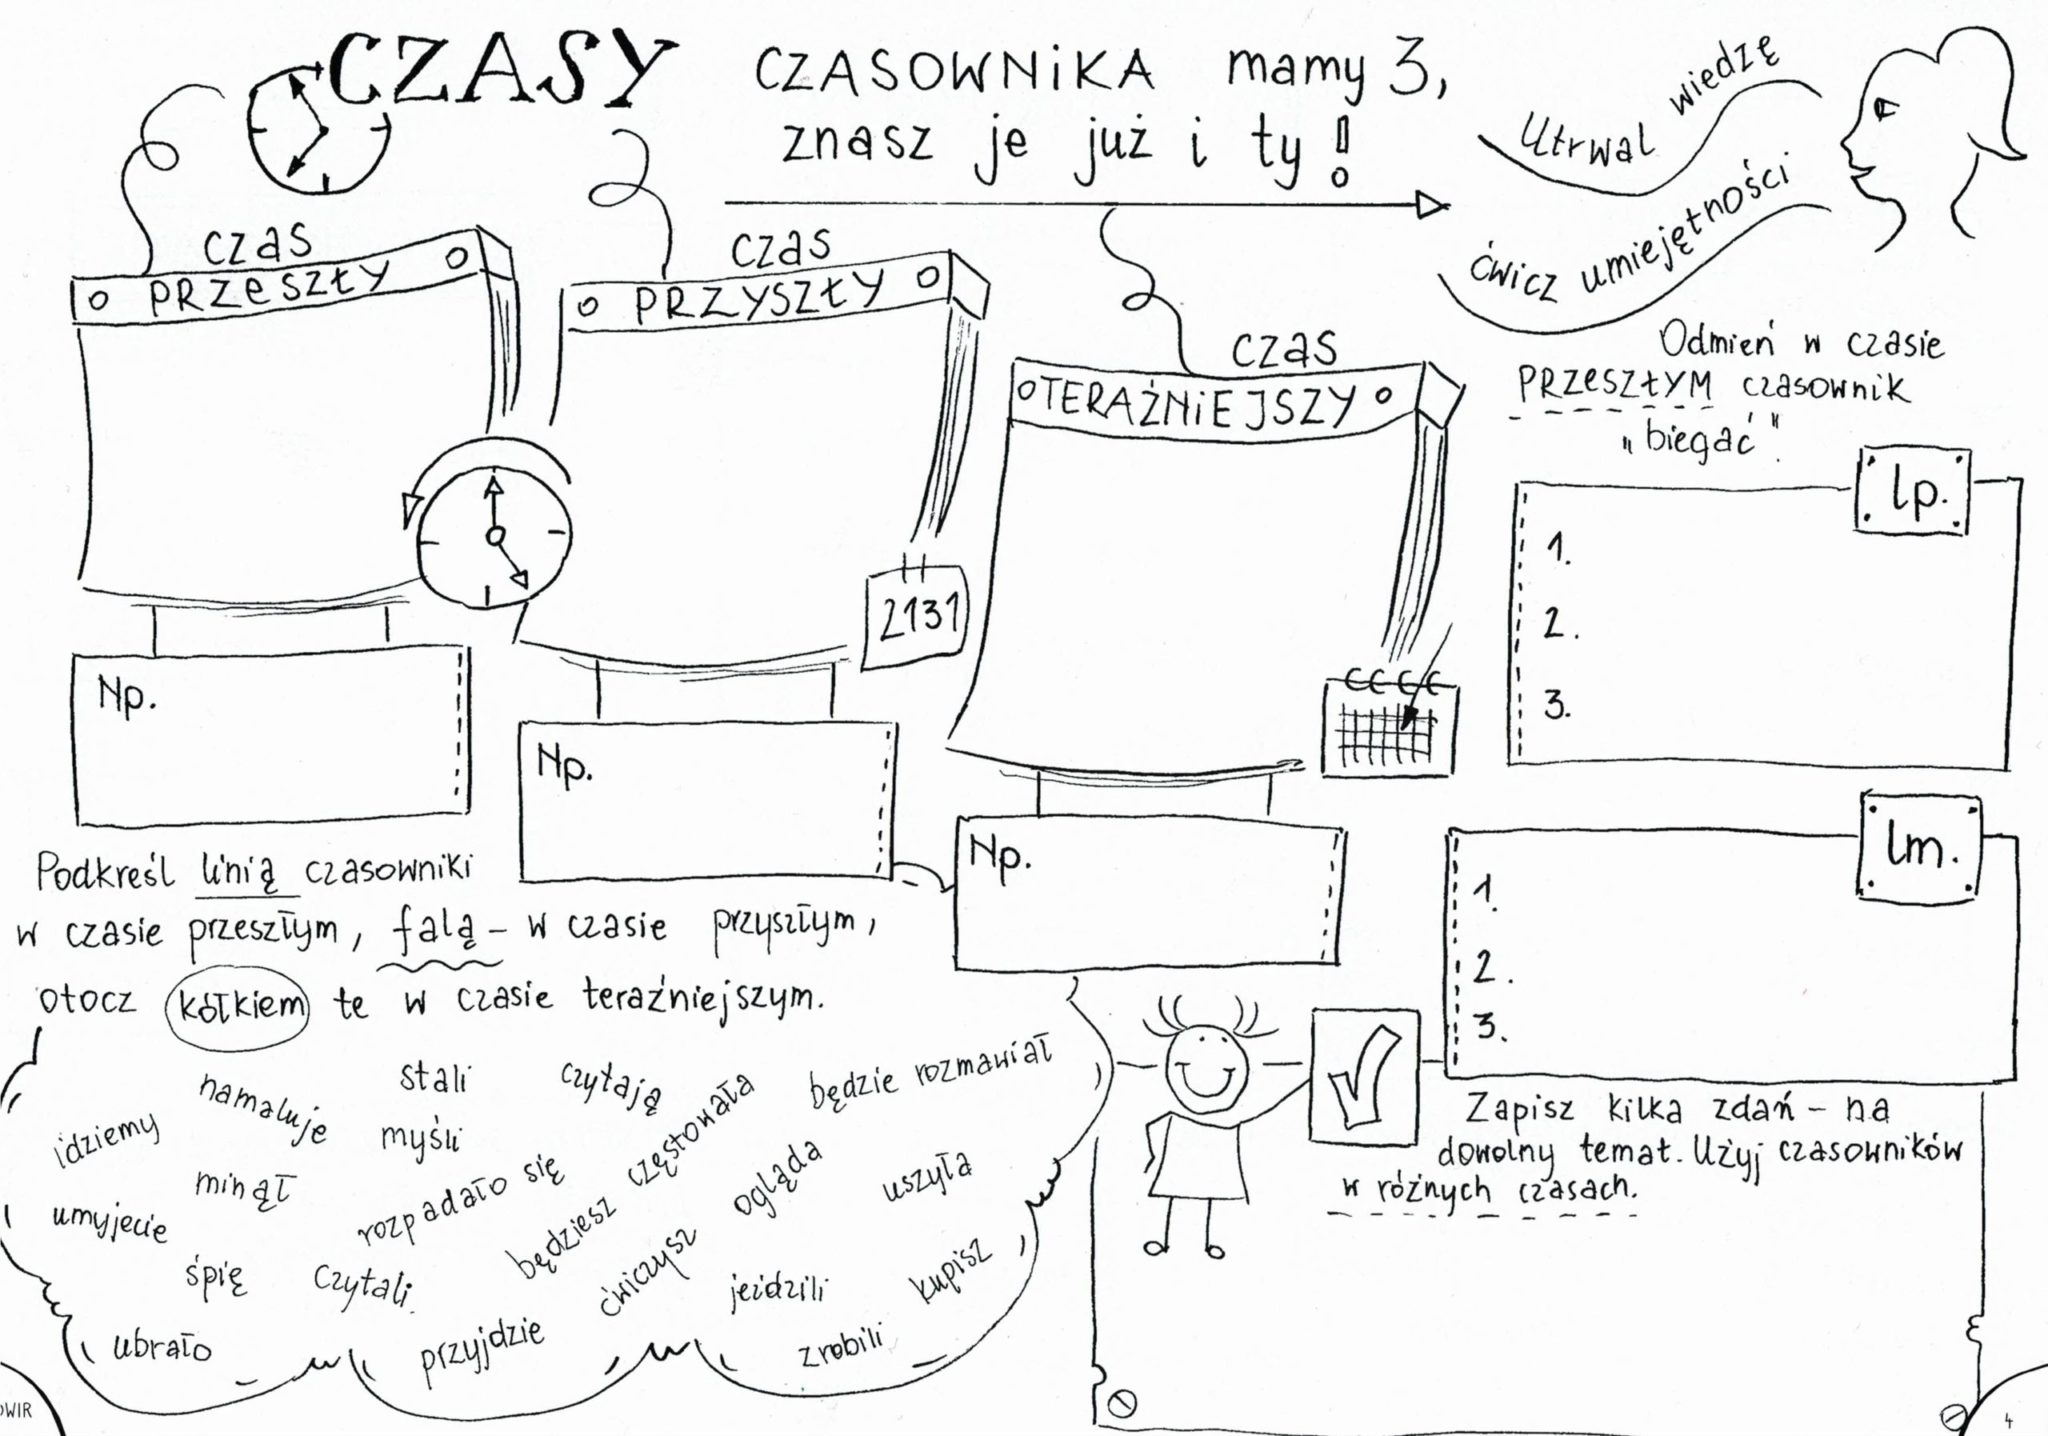 CZASY CZASOWNIKA mamy 3,
znasz je już i ty!
Utrwal wiedzę
ćwicz umiejętności
czas
PRZESZŁY
czas
PRZYSZŁY
czas
TERAŹNIEJSZY
2131
Np.
Np.
Np.
Odmień w czasie
PRZESZŁYM czasownik
„biegać".
lp.
1.
2.
3.
lm.
1.
2.
3.
Podkreśl linią czasowniki
w czasie przeszłym, falą – w czasie przyszłym,
otocz kółkiem te w czasie teraźniejszym.
idziemy
namaluje
stali
czytają
będzie rozmawiał
myśli
minął
umyjecie
rozpadało się
będziesz częstowała
ogląda
uszyła
śpię
czytali
ćwiczysz
jeździli
kupisz
ubrało
przyjdzie
zrobili
Zapisz kilka zdań – na
dowolny temat. Użyj czasowników
w różnych czasach.
4